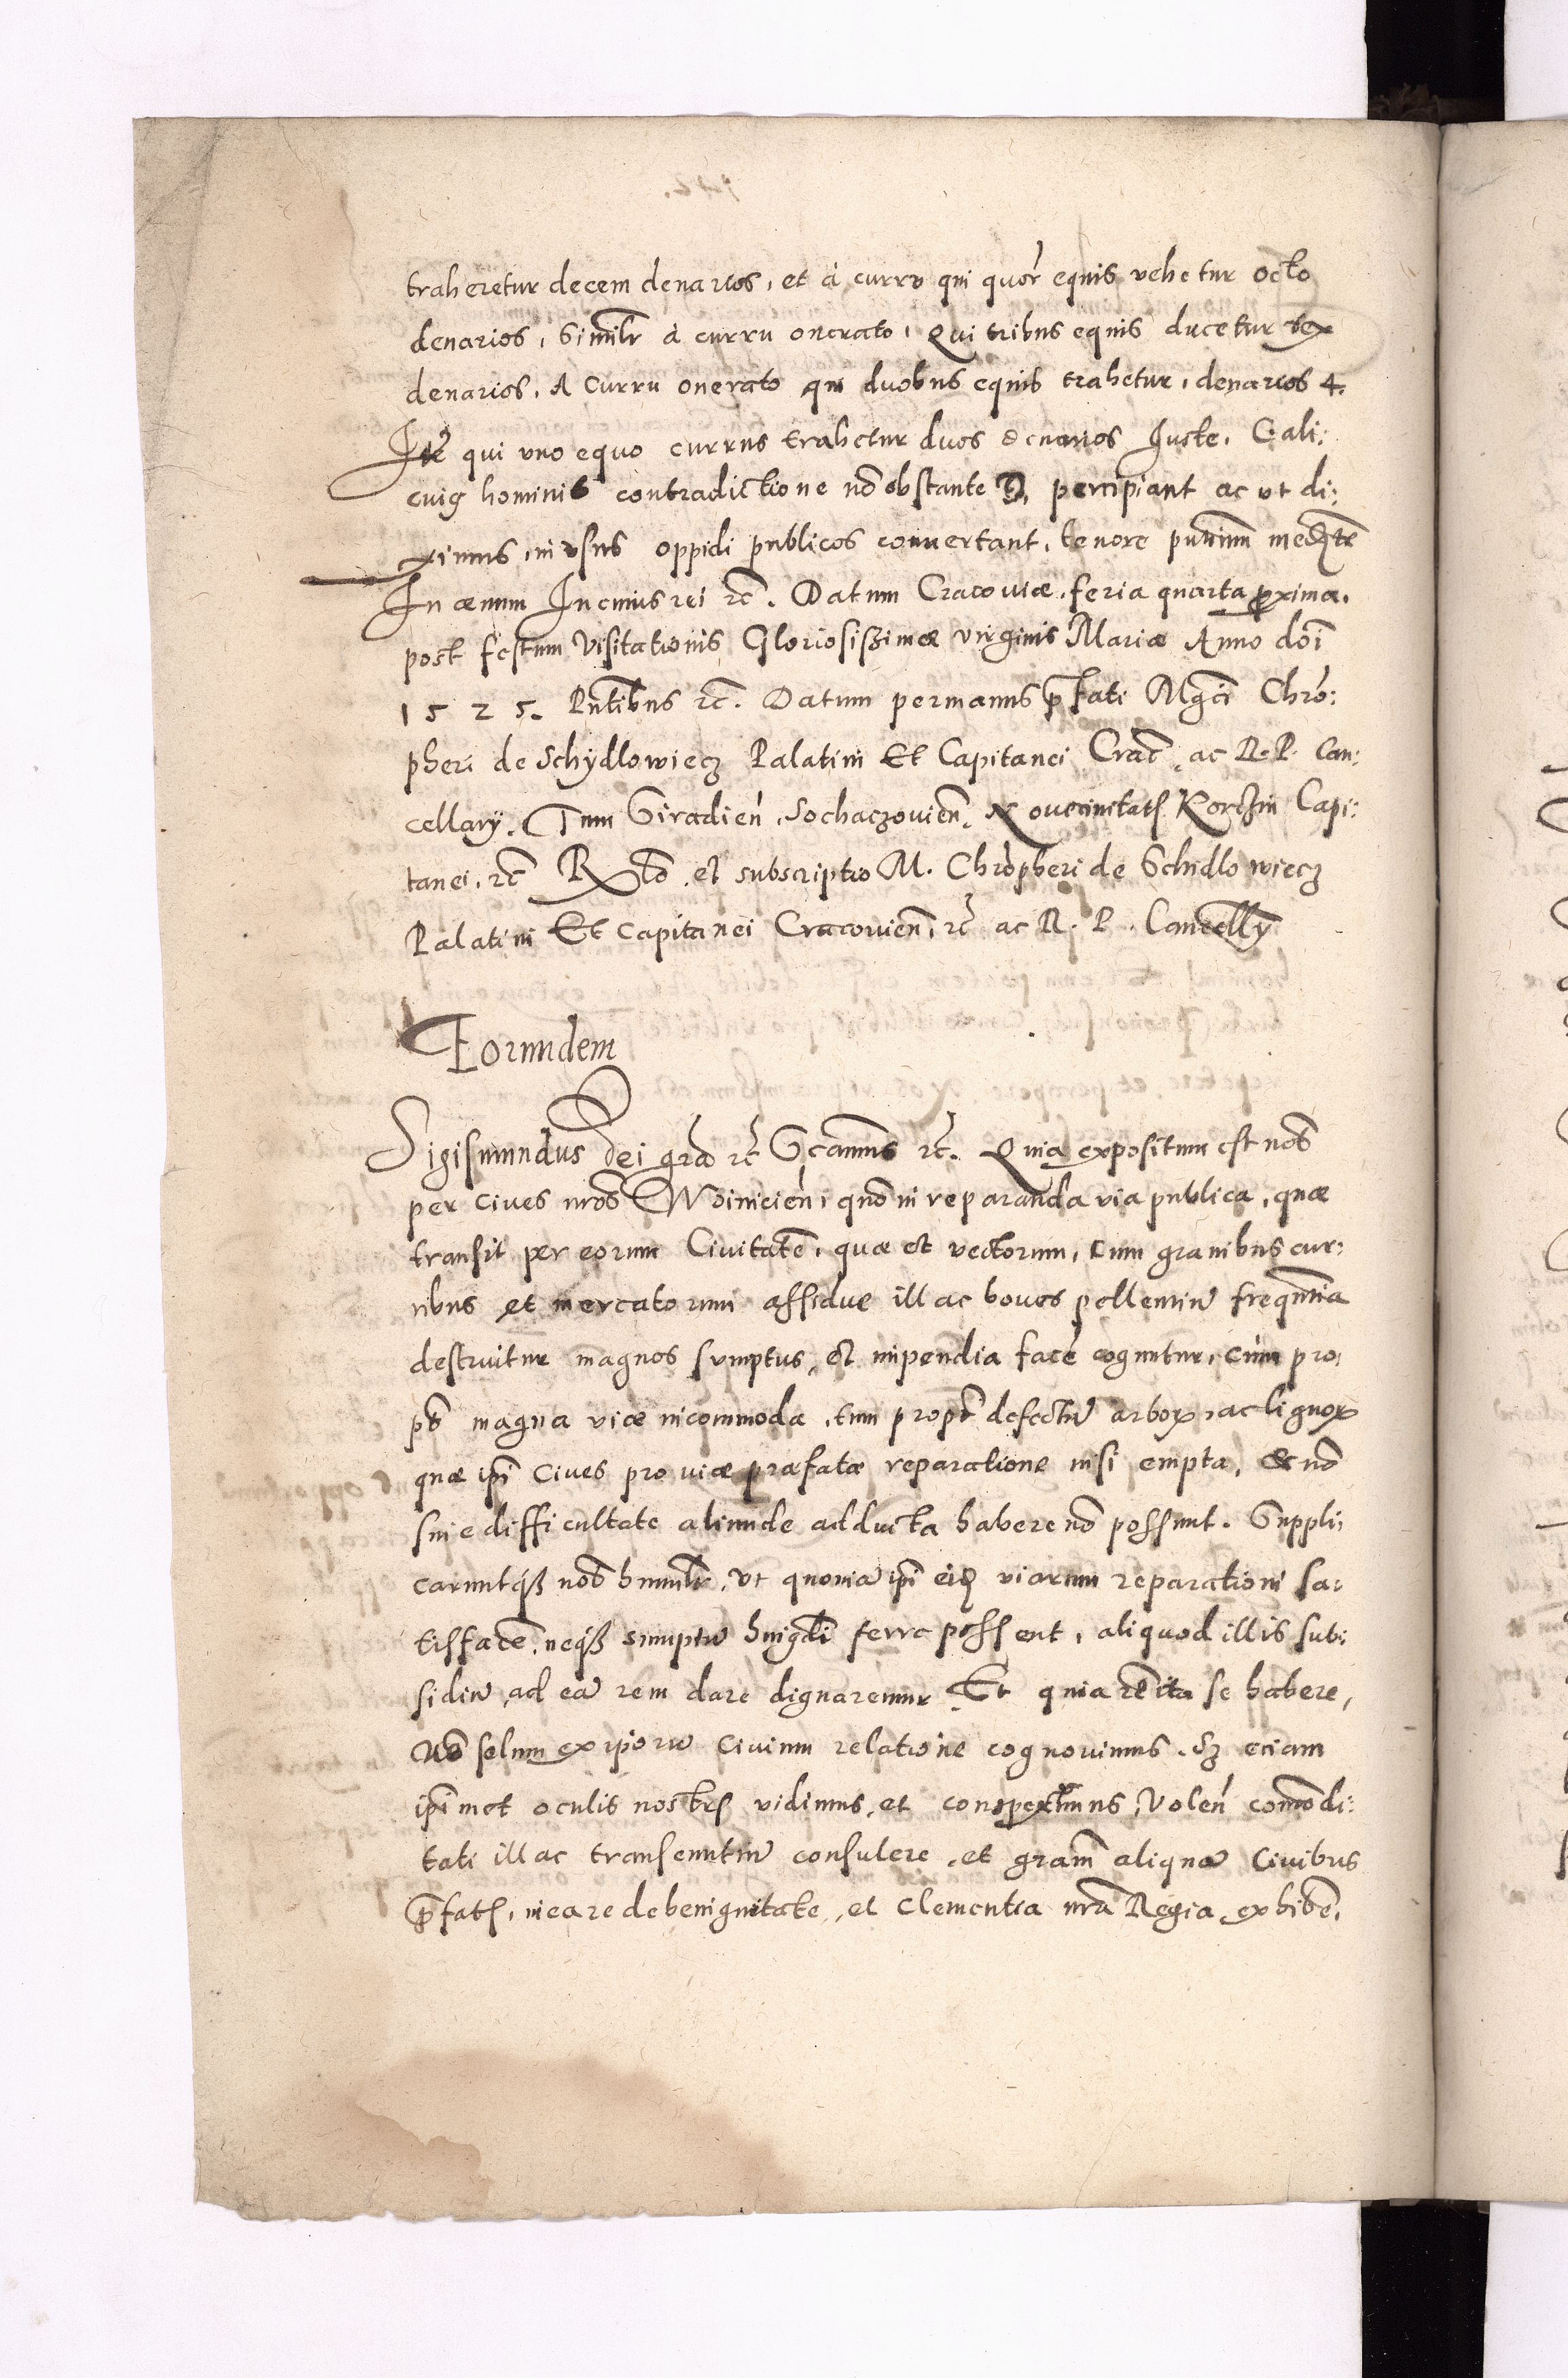 traheretur decem denarios, et à curru qui quor̃ equis vehetur octo
denarios, Similr̃ à curru onerato, Qui tribus equis ducetur sex
denarios, A curru onerato qui duobus equis trahetur, denarios 4.
Itẽ qui uno equo currus trahetur duos denarios Juste. Cali:
cuiq hominis contradictione nõ obstante percipiant ac ut di:
ximus, in usus oppidi publicos convertant, tenore p̃ntium med̃te
In æuum In cuius rei rc̃. Datum Cracoviæ, feria quarta proxima.
post festum Visitationis Gloriosißimæ virginis Mariæ Anno doı̃
1525. P̃ntibus rc̃. Datum per manus p̃fati Mg̃ci Chrõ:
pheri de Schydlowiecz Palatini Et Capitanei Crac̃, ac R. P. Can:
cellarÿ. Tum Siradieñ, Sochaczovieñ, Novecivitatꝭ Korczin Capi:
tanei, rc̃ Rl̃o, et subscriptio M. Chrõpheri de Schidlowiecz
Palatini Et Capitanei Cracovieñ, rc̃ ac R. P. Cancellÿ
Eorundem
Sigismundus Dei gr̃a rc̃ Sc̃amus rc̃. Quia expositum est nob̃
per cives nr̃os Woinicień, quõ in reparanda via publica, quæ
transit per eorum Civitatẽ, quæ et vectorum, cum gravibus cur:
ribus et mercatorum assidue illac boves pellentiũ frequñtia
destruitur magnos sumptus, et impendia facẽ cogũntur, cùm pro:
pt̃ magna viæ incommoda, tum propt̃ defectũ arborꝝ, ac lignorꝝ
quæ ip̃i Cives pro viæ præfatæ reparatione nisi empta, & nõ
sine difficultate aliunde adducta habere nõ possunt. Suppli:
carunt nob̃ humilr̃, ut quoniã ip̃i viarum reparationi sa:
tisfacẽ, neqꝫ sumptũ hui9modi ferre possent, aliquod illis sub:
sidiũ, ad eã rem dare dignaremur. Et quia rẽ ita se habere,
Nõ solum ex ip̃orũ Civium relatione cognovimus. Sꝫ eciam
ip̃imet oculis nostrꝭ vidimus, et conspeximus, Voleñ com̃odi:
tati illac transeuntiũ consulere, et gra̅m aliquã Civibus
p̃fatꝭ, in ea re de benignitate, et Clementia nr̃a Regia exhibẽ.